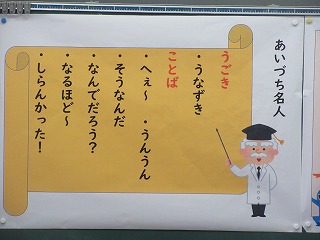 あいづち名人
うごき
・うなずき
ことば
・へぇ～　・うんうん
・そうなんだ
・なんでだろう？
・なるほど～
・しらんかった！